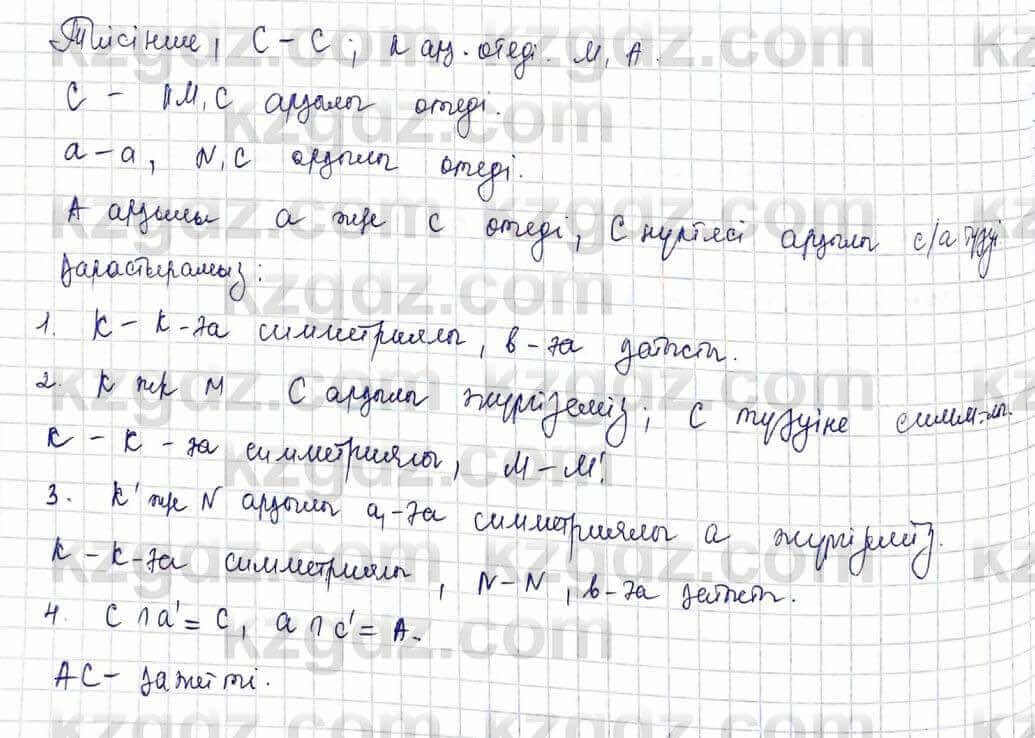 Тиісінше, С – С; к арқ. өтеді. М, А.
С – М, С арқылы өтеді.
а – а, N, С арқылы өтеді.
А арқылы а және с өтеді, С нүктесі арқылы с/а түзуі
қарастырамыз:
1. К – К-ға симметриялы, в-ға қатысты.
2. К және М С арқылы жүргіземіз; С түзуіне симм-лы.
К – К – ға симметриялы, М – М'.
3. К' және N арқылы а,-ға симметриялы а жүргіземіз.
К – К-ға симметриялы, N – N, в-ға қатысты.
4. С ∩ а' = С, а ∩ с' = А.
АС – қажетті.
kzgdz.com